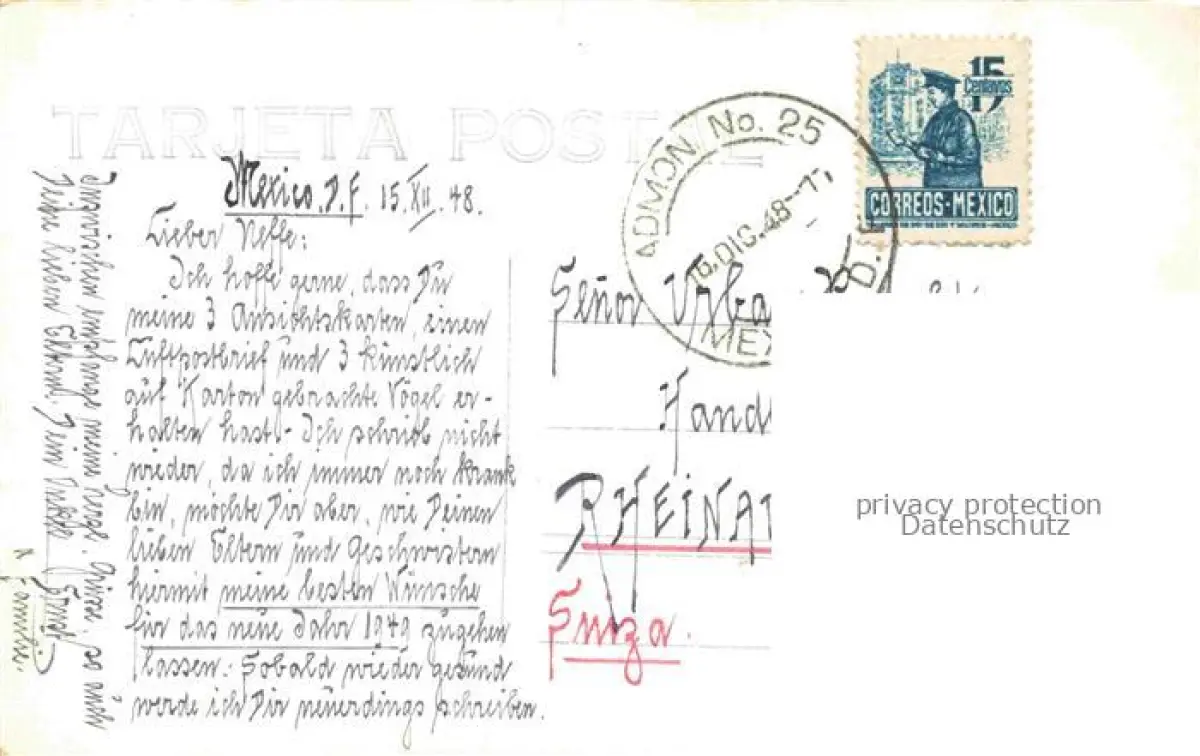 TARJETA POSTAL
Mexico. D.F. 15. XII. 48.
Lieber Neffe:
Ich hoffe gerne, dass Du
meine 3 Ansichtskarten, einen
Luftpostbrief und 3 künstlich
auf Karton gebrachte Vögel er-
halten hast.- Ich schrieb nicht
wieder, da ich immer noch krank
bin, möchte Dir aber, wie Deinen
lieben Eltern und Geschwistern
hiermit meine besten Wünsche
für das neue Jahr 1949 zugehen
lassen.- Sobald wieder gesund
werde ich Dir neuerdings schreiben.
Inzwischen empfange mein
Onkel
& Familie.
ADMON No. 25
16. DIC. 48
MEX
D.F.
15
Centavos
CORREOS-MEXICO
Señor Urba
Hand
RHEINA
Suiza.
privacy protection
Datenschutz